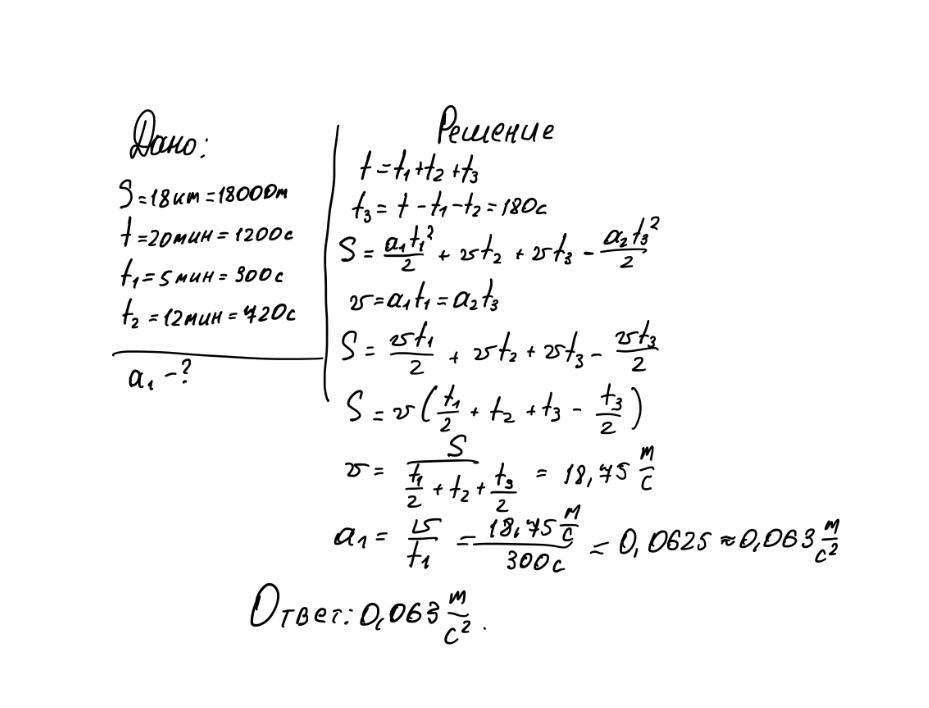 Дано:
S = 18 км = 18000 м
t = 20 мин = 1200 с
t₁ = 5 мин = 300 с
t₂ = 12 мин = 720 с
a₁ - ?
Решение
t = t₁ + t₂ + t₃
t₃ = t - t₁ - t₂ = 180 с
S = a₁t₁²/2 + vt₂ + vt₃ - a₂t₃²/2
v = a₁t₁ = a₂t₃
S = vt₁/2 + vt₂ + vt₃ - vt₃/2
S = v(t₁/2 + t₂ + t₃ - t₃/2)
v = S/(t₁/2 + t₂ + t₃/2) = 18,75 м/с
a₁ = v/t₁ = 18,75 м/с / 300 с = 0,0625 ≈ 0,063 м/с²
Ответ: 0,063 м/с².